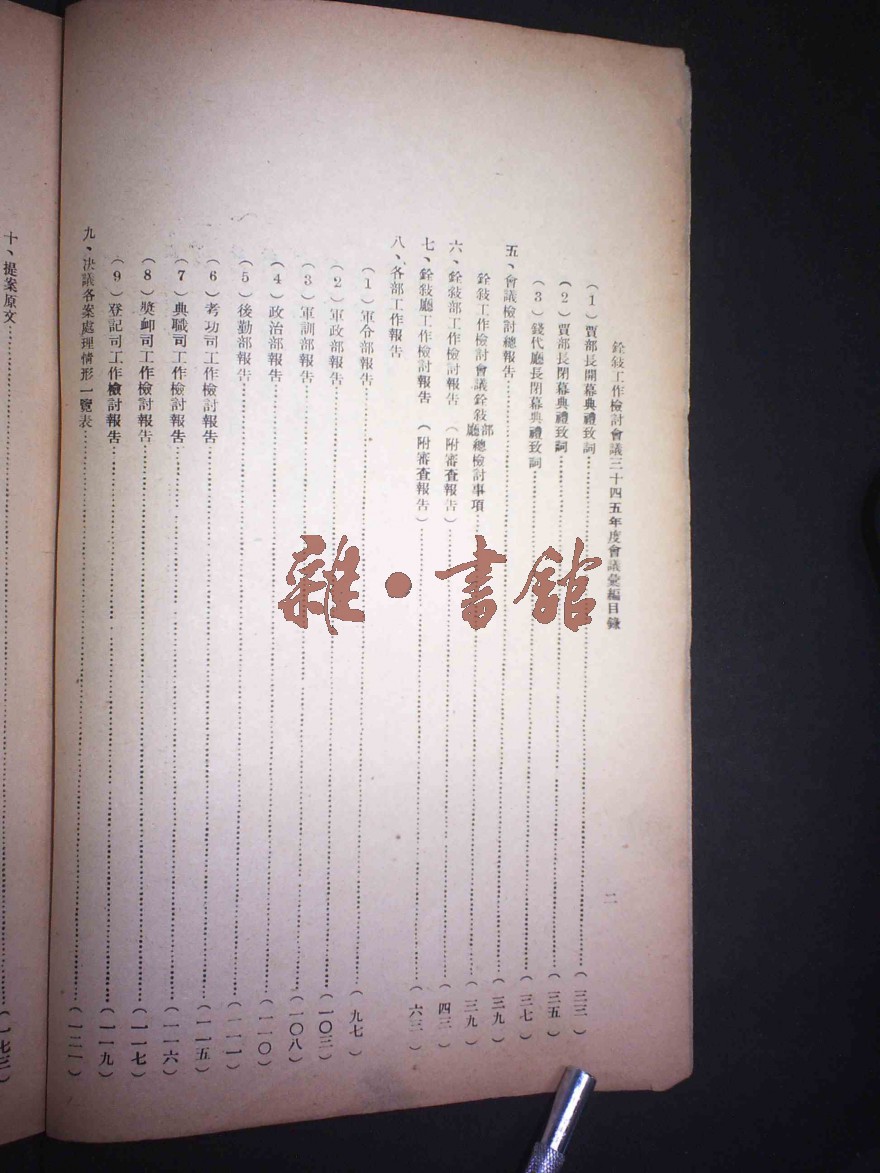 銓敍工作檢討會議三十四五年度會議彙編目錄
二
(1)賈部長開幕典禮致詞……(三三)
(2)賈部長閉幕典禮致詞……(三五)
(3)錢代廳長閉幕典禮致詞……(三七)
五、會議檢討總報告……(三九)
銓敍工作檢討會議銓敍部廳總檢討事項……(三九)
六、銓敍部工作檢討報告(附審查報告)……(四三)
七、銓敍廳工作檢討報告(附審查報告)……(六三)
八、各部工作報告
(1)軍令部報告……(九七)
(2)軍政部報告……(一〇三)
(3)軍訓部報告……(一〇八)
(4)政治部報告……(一一〇)
(5)後勤部報告……(一一一)
(6)考功司工作檢討報告……(一一五)
(7)典職司工作檢討報告……(一一六)
(8)獎卹司工作檢討報告……(一一七)
(9)登記司工作檢討報告……(一一九)
九、決議各案處理情形一覽表……(一二一)
十、提案原文……(一七三)
雜·書館